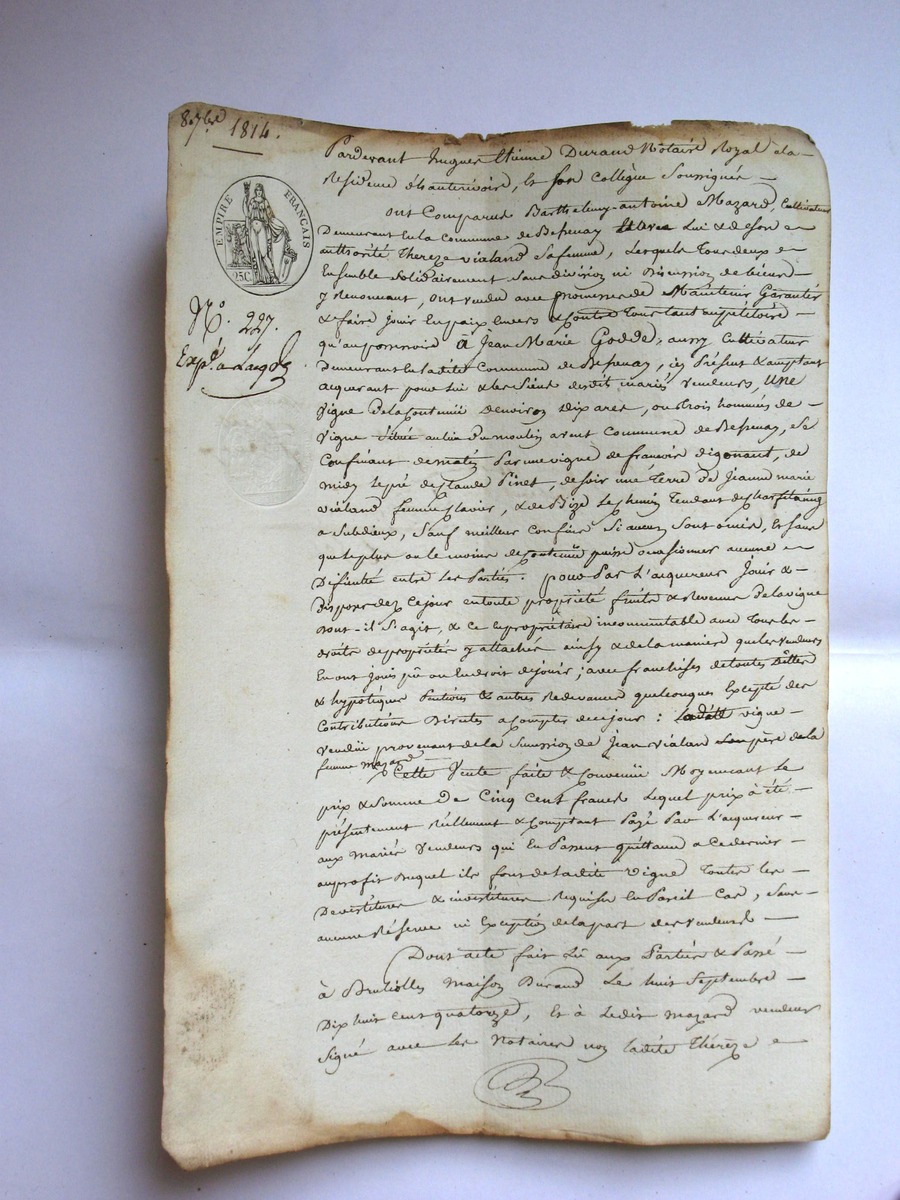 8. 7bre 1814.
EMPIRE FRANÇAIS
25C.
No. 227.
Expé. a l'aqr
Pardevant hugues Etienne Durand Notaire Royal ala
Residence et Son Collègue Soussignés
ont Comparus Barthelemy-antoine Mazard, Cultivateur
Demeurant En la Commune de Bessenay Lui & de Son
authorité Thereze vialand Safemme, Lesquels Tousdeux
Ensemble Solidairement Sans division ni Discussion debiens
y Renoncant, ont vendu avec promesse de Maintenir Garantir
& faire Jouir Enpaix Envers & Contre Tous tant aupétitoire
qu'aupossessoire à Jean Marie Godde, aussy Cultivateur
Demeurant En ladite Commune de Bessenay, ici Présent & acceptant
acquerant pour Lui & les Siens desdits mariés vendeurs, une
vigne De la Contenüe denviron dix ares, ou trois hommés de
vigne Située au lieu Du moulin avent Commune de Bessenay, Se
Confinant de matin Par une vigne de francois digonant, de
midy Le pré de Claude Pinet, de Soir une Terre de Jeanne marie
vialand femme Clavier, & de Bize Le chemin Tendant de
a Subdieux, Sauf meilleur Confins Si aucuns Sont omis, Et Sans
que Le plus ou le moins de Contenüe puisse ocasionner aucune
Dificulté entre Les Parties. pour Par L'acquereur Jouir &
Disposer dez Cejour entoute propriété fruits & Revenus De la vigne
dont-il S'agit, & Ce propriétaire incommutable avec Tous les
droits de propriétés y attachés ainsy & de la maniere que les vendeurs
En ont Jouis pû ou En droit de jouir; avec franchises de toutes Dettes
& hypotéques Pentions & autres Redevances quelconques Excepté des
Contributions Directes a Compter de cejour : Ladite vigne
vendüe provenant de la Succession de Jean vialand Son père de la
femme Mazard
Cette Vente faite & Convenüe Moyennant Le
prix & Somme de Cinq Cent francs Lequel prix à été
présentement Réellement & Comptant Payé Par L'acquereur
aux Mariés Vendeurs qui En Passent quittance a Ce dernier
auprofit Duquel ils font de ladite vigne Toutes Les
Devestitures & investitures Requises En Pareil Cas, Sans
aucune Réserve ni Exception de la part des Vendeurs
Dont acte fait Lû aux Parties & Passé
à Brullioles Maison Durand Le huit Septembre
Dix huit Cent quatorze, Et à Ledit Mazard vendeur
Signé avec Les Notaires non ladite Thérèze